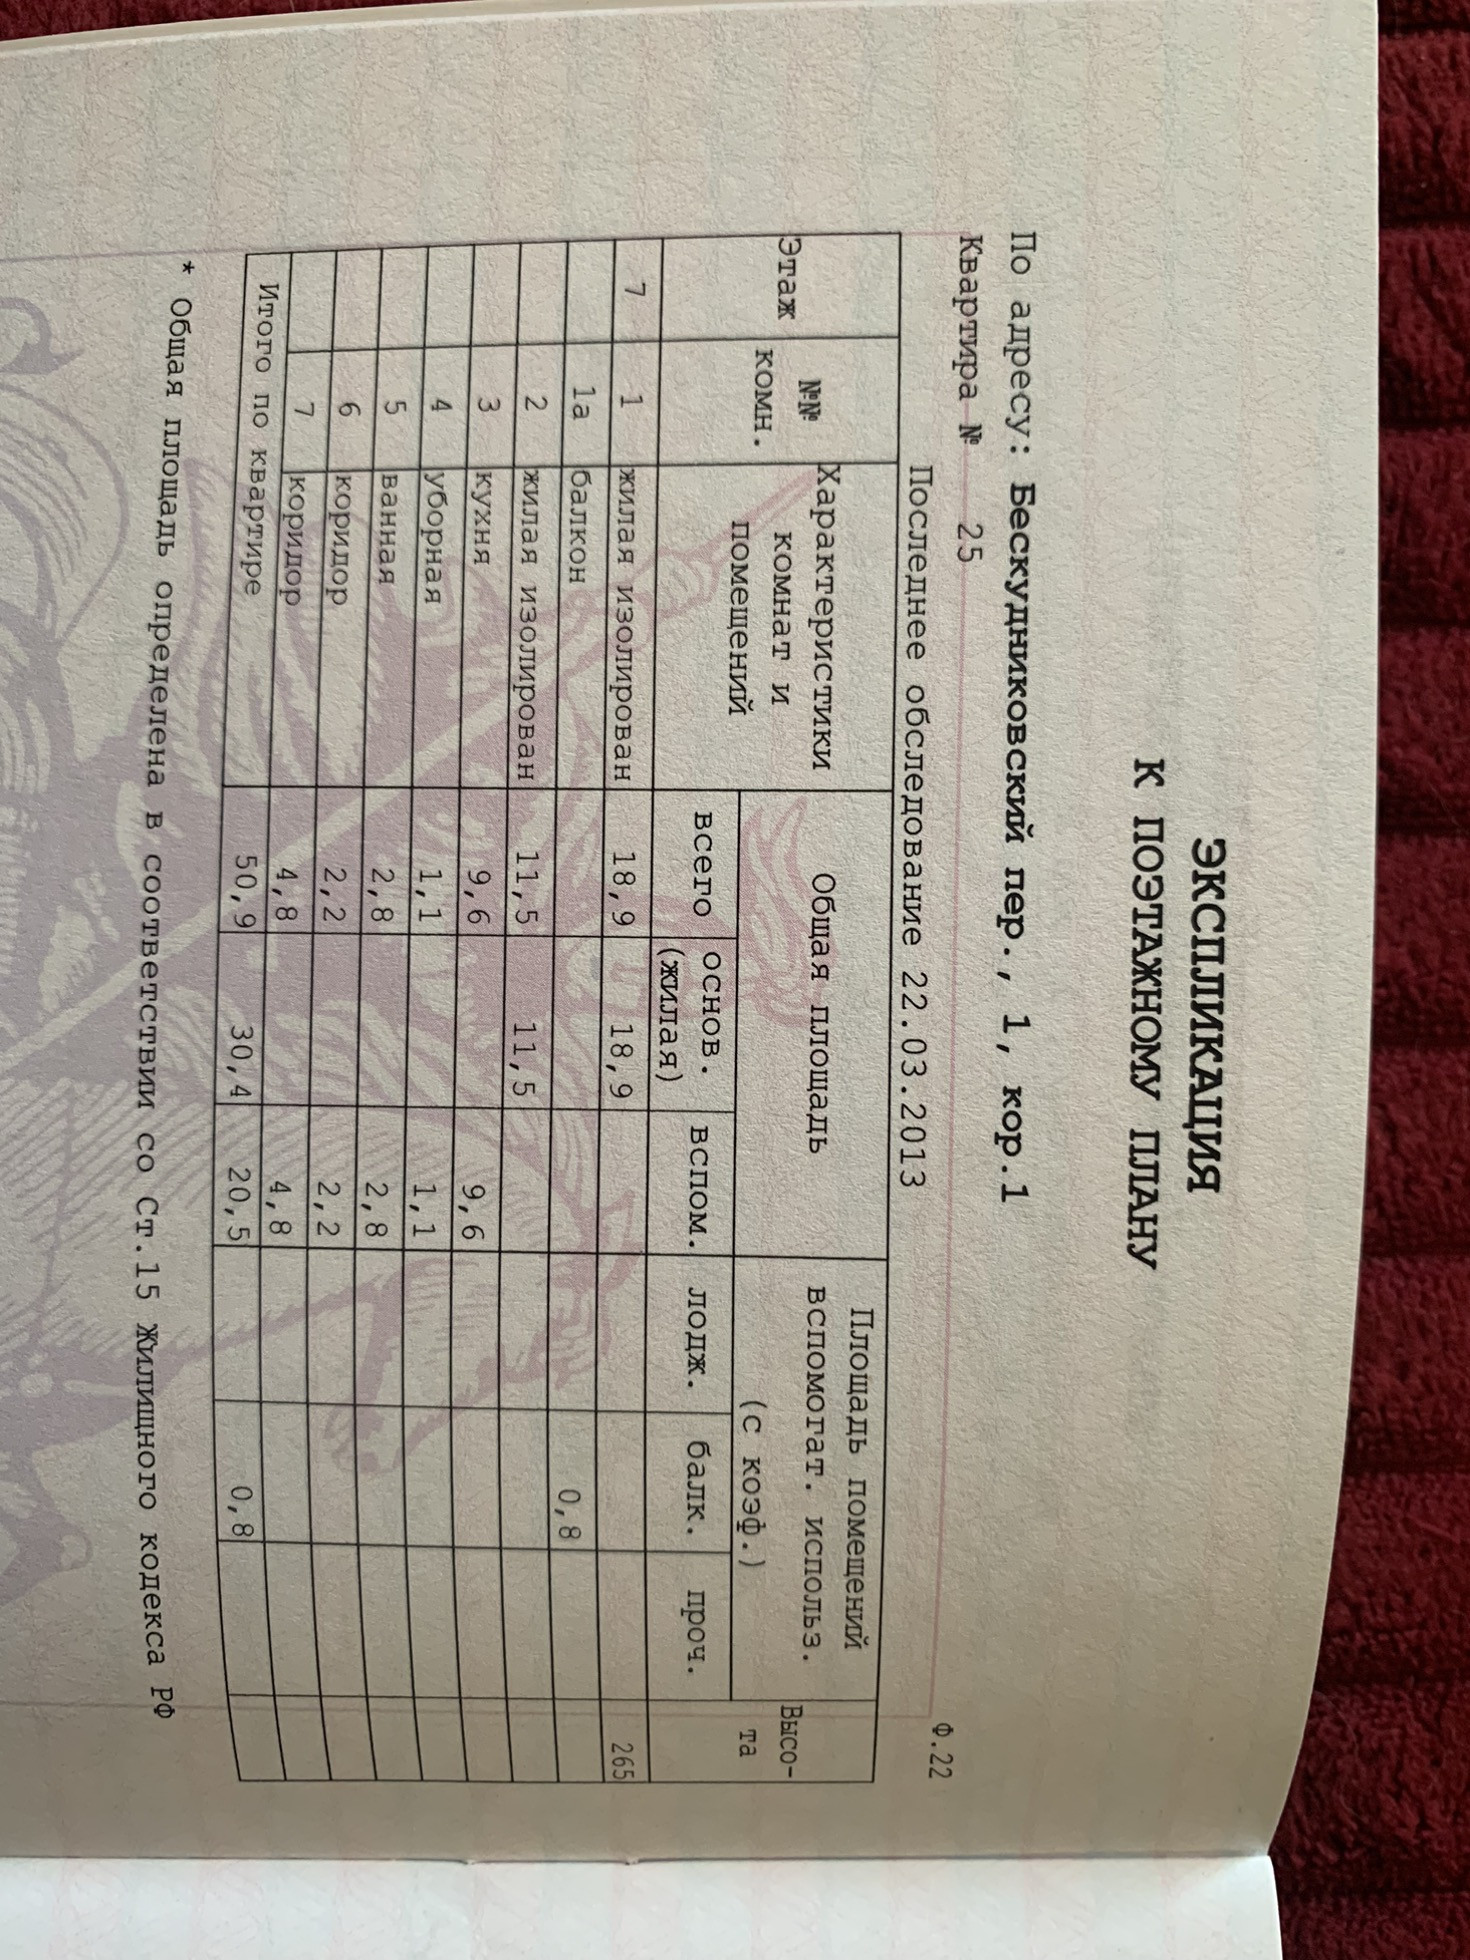 ЭКСПЛИКАЦИЯ
К ПОЭТАЖНОМУ ПЛАНУ
Ф.22
По адресу: Бескудниковский пер., 1, кор.1
Квартира № 25
Последнее обследование 22.03.2013
Этаж №№ комн. Характеристики комнат и помещений Общая площадь Площадь помещений вспомогат. использ. (с коэф.) Высо-та
всего основ. (жилая) вспом. лодж. балк. проч.
7 1 жилая изолирован 18,9 18,9 265
1а балкон 0,8
2 жилая изолирован 11,5 11,5
3 кухня 9,6 9,6
4 уборная 1,1 1,1
5 ванная 2,8 2,8
6 коридор 2,2 2,2
7 коридор 4,8 4,8
Итого по квартире 50,9 30,4 20,5 0,8
* Общая площадь определена в соответствии со Ст.15 Жилищного кодекса РФ